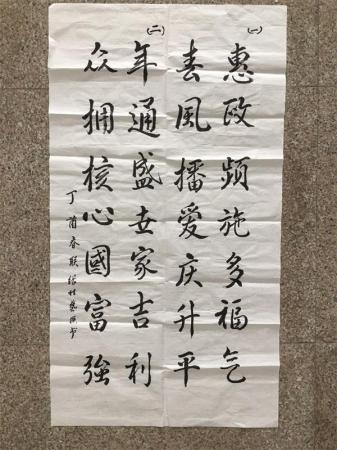 (一)
惠政频施多福气
春風播爱庆升平
(二)
年通盛世家吉利
众拥核心國富強
丁酉春联